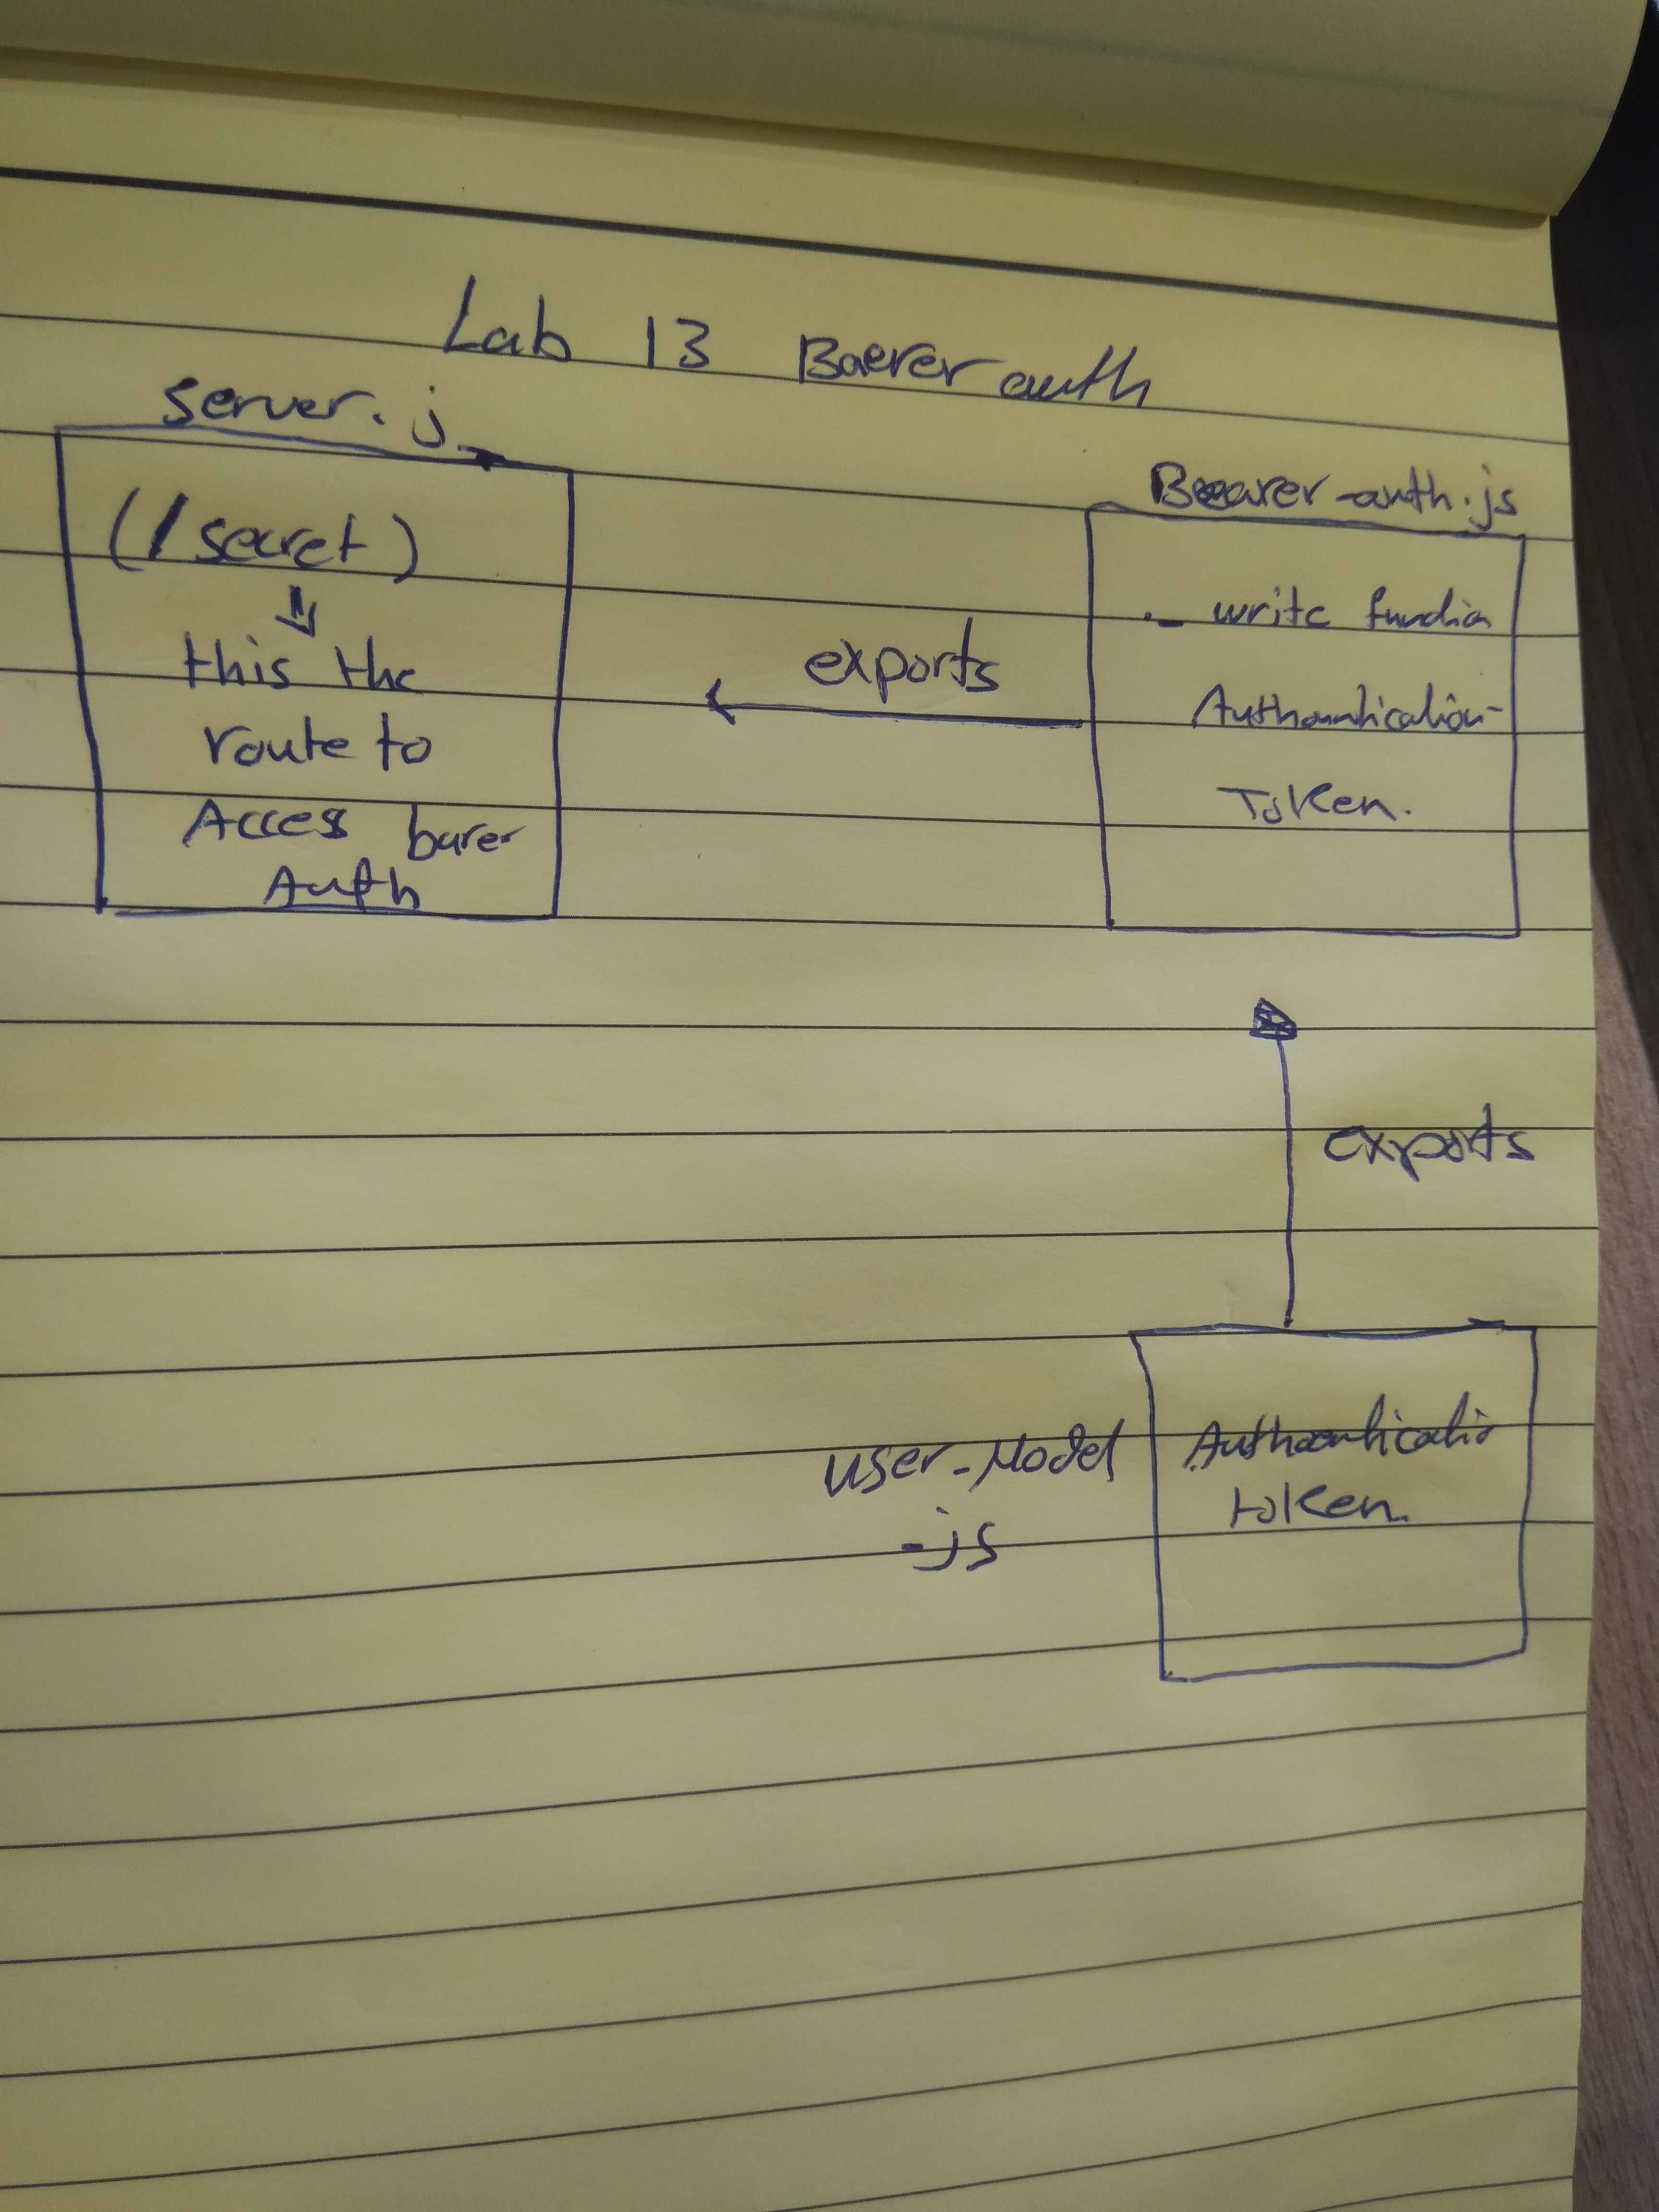 Lab 13 Baerer auth
server.j
(/secret)
this the
route to
Access barer
Auth
exports
Bearer-auth.js
- write function
Authantication-
Token.
exports
user-Model
-js
Authanticatio
token.